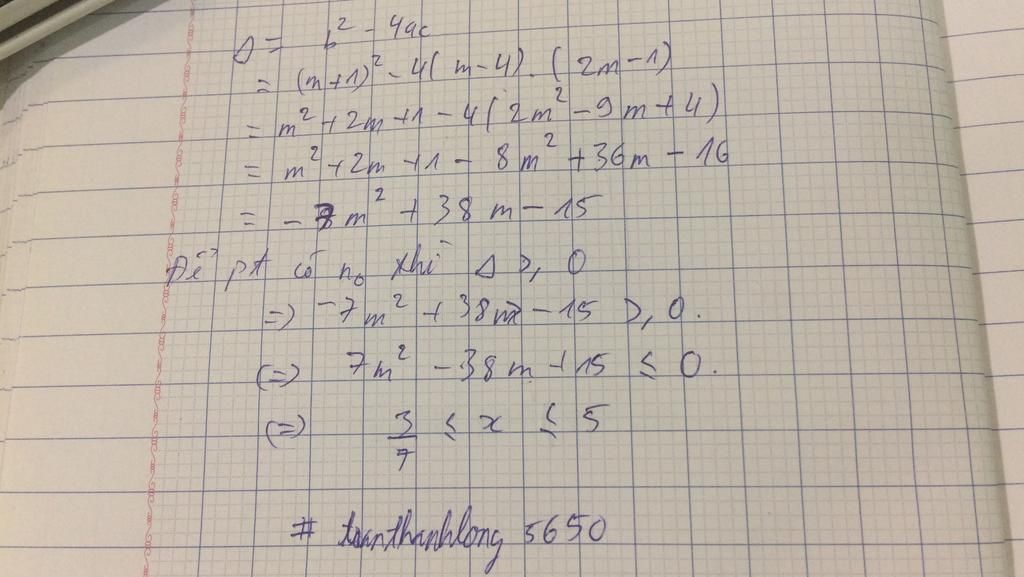 Δ = b² - 4ac
= (m+1)² - 4(m-4).(2m-1)
= m² + 2m + 1 - 4(2m² - 9m + 4)
= m² + 2m + 1 - 8m² + 36m - 16
= - 7m² + 38m - 15
Để pt có n₀ khi Δ ≥ 0
=> -7m² + 38m - 15 ≥ 0.
(=) 7m² - 38m + 15 ≤ 0.
(=) 3/7 ≤ x ≤ 5
# tranthanhlong 5650